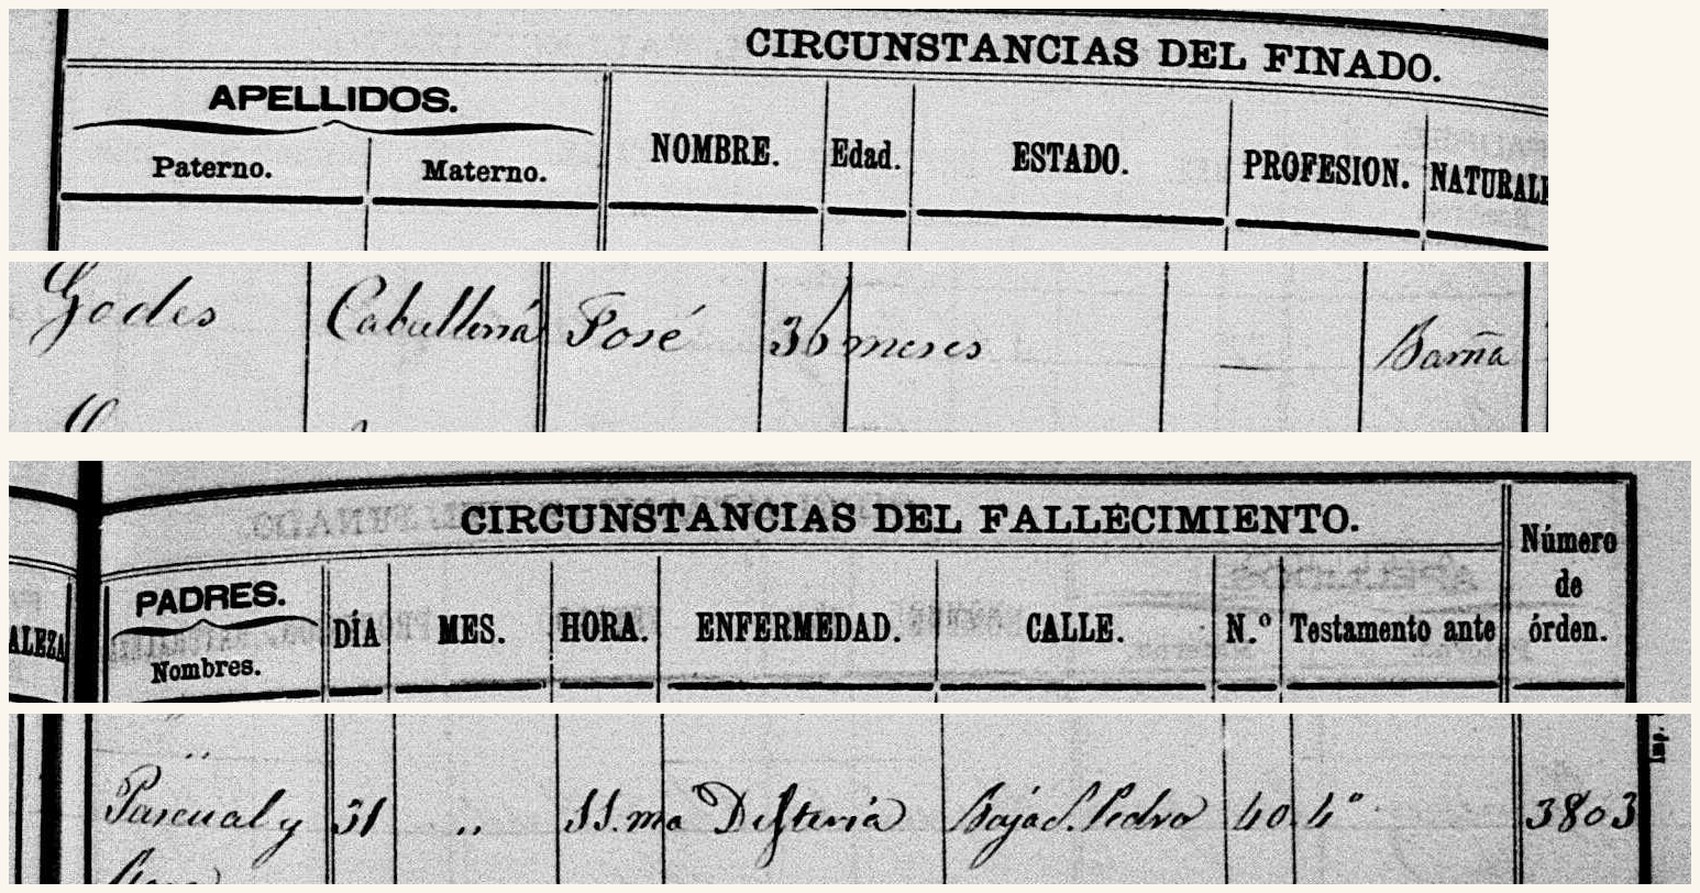 CIRCUNSTANCIAS DEL FINADO.
APELLIDOS.
Paterno. Materno. NOMBRE. Edad. ESTADO. PROFESION. NATURALE
Godes Caballeriá José 36 meses — Barña
CIRCUNSTANCIAS DEL FALLECIMIENTO.
PADRES. Nombres. DÍA MES. HORA. ENFERMEDAD. CALLE. N.º Testamento ante Número de órden.
ALEZA
"
Pascual y 31 " 11. ma Difteria Baja S. Pedro 40. 4º 3803
Imp.